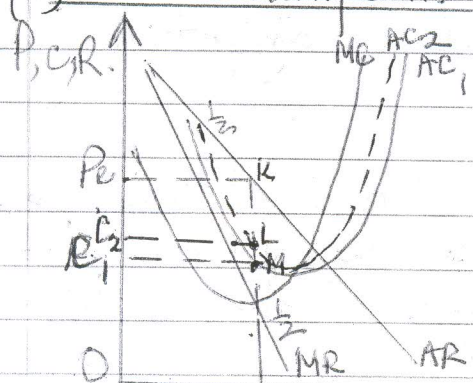 P,C,R.
MC AC2
AC1
Pe
K
C2
L
C1
M
1/2
O
MR
AR